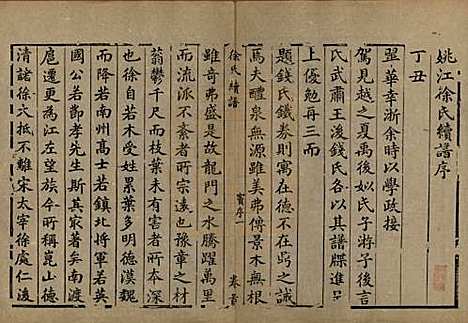 姚江徐氏續譜序
丁丑
翠華幸浙余時以學政接
駕見越之夏禹後姒氏子游子後言
氏武肅王後錢氏各以其譜牒進呈
上優勉再三而
題錢氏鐵券則寓在德不在恃之誠
焉夫醴泉無源雖美弗傳景木無根
雖奇弗盛故龍門之水騰躍萬里
而流派不紊者所宗遠也豫章之木
蓊鬱千尺而枝葉未有害者所本深
也徐自若木受姓累葉多明德漢魏
而降若南州高士若鎮北將軍若英
國公若節孝先生斯其著矣南渡
扈遷更為江左望族今所稱崑山德
清諸徐大抵不離宋太宰徐處仁後
徐氏續譜
賓序一
卷首